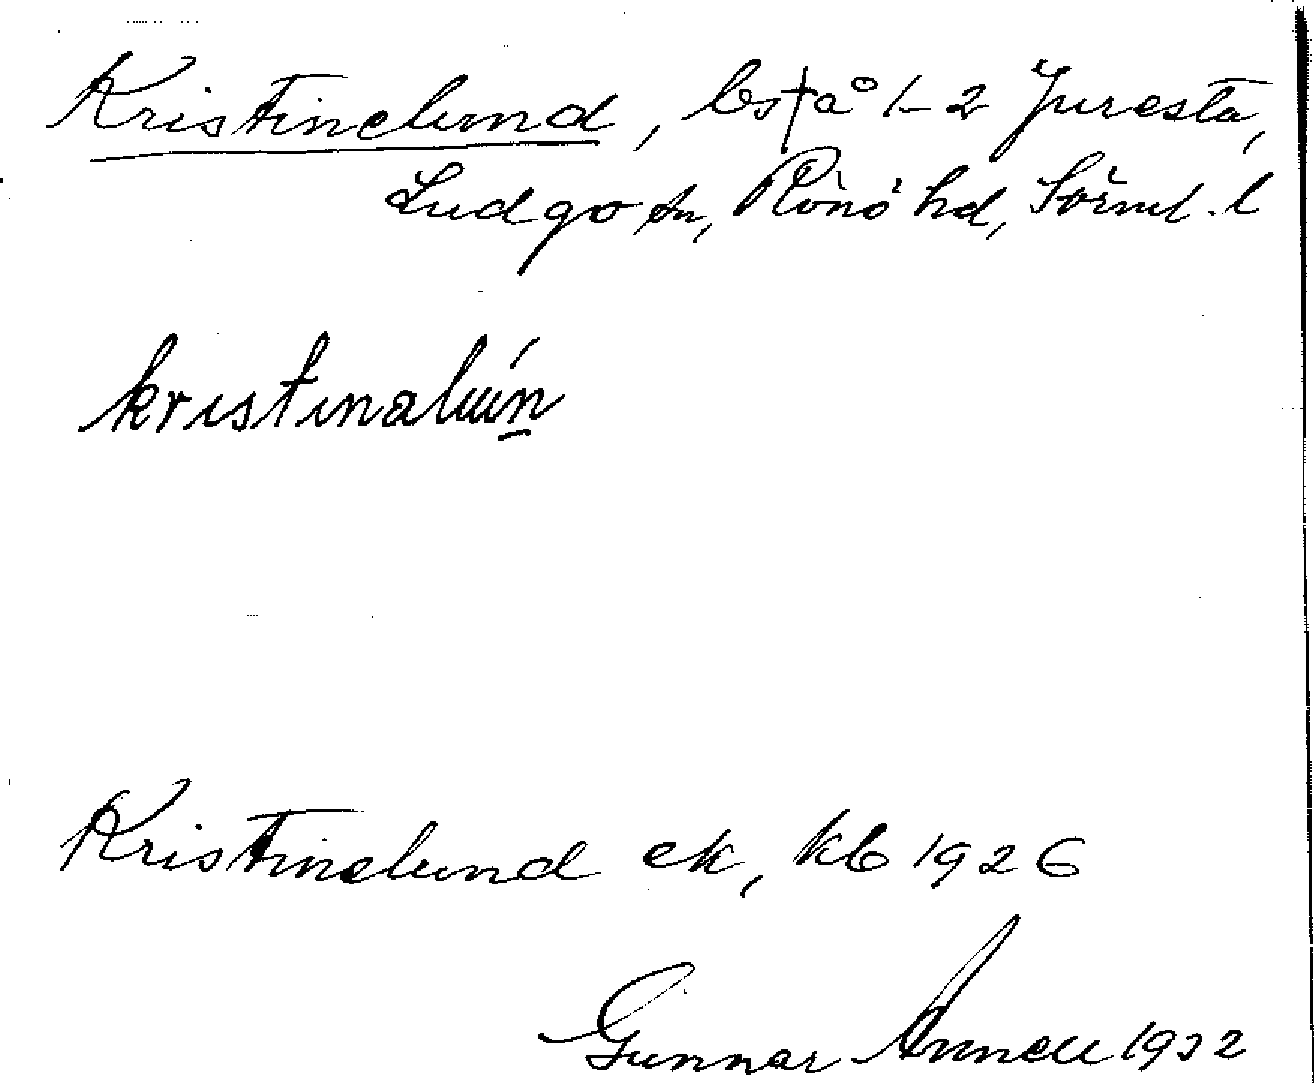 Kristinelund, lgst å 1-2 Juresta,
Ludgo sn, Rönö hd, Sörml. l
kristinalún
Kristinelund ek, kb 1926
Gunnar Annell 1932